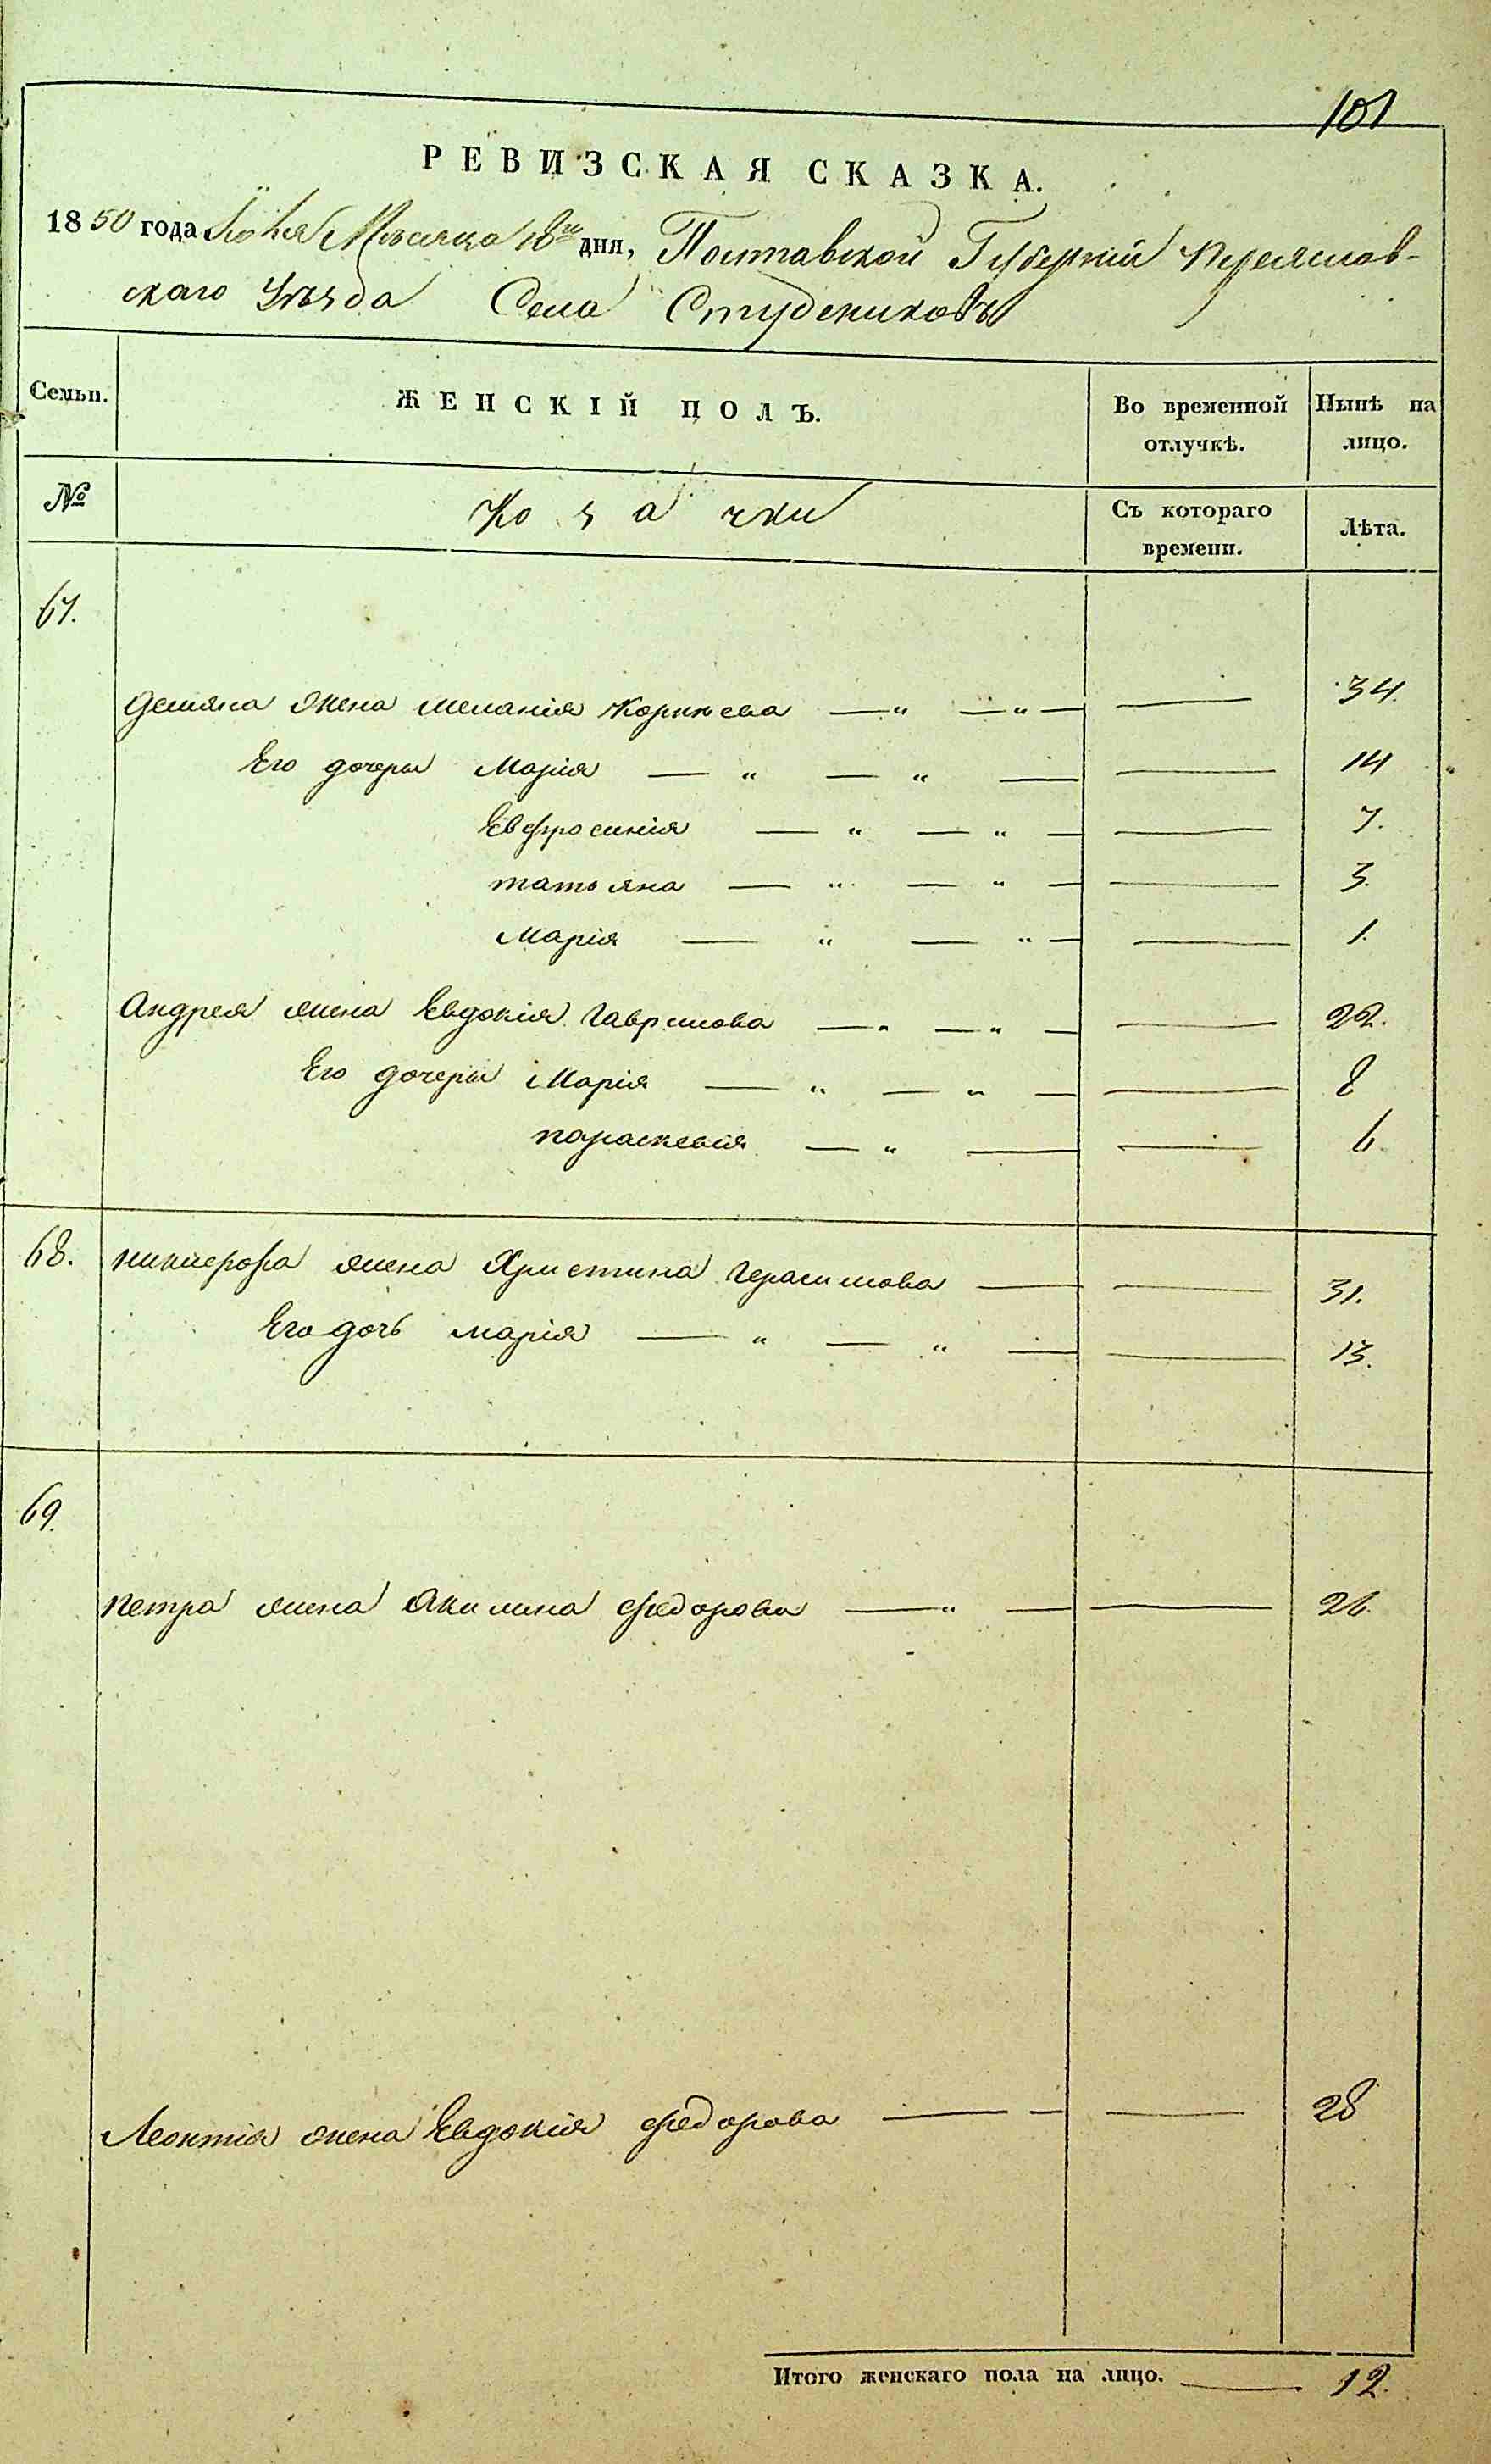 101
РЕВИЗСКАЯ СКАЗКА.
1850 года Мѣсяца 18го дня, Полтавской Губерніи Переяслав-
скаго Уѣзда Села Студениковъ
Семьи. ЖЕНСКІЙ ПОЛЪ. Во временной отлучкѣ. Нынѣ на лицо.
№ Козачки Съ котораго времени. Лѣта.
67.
Демяна жена Меланія Корнѣева — " — " — — 34.
Его дочери Марія — " — " — — 14
Евфросинія — " — " — — 7.
татьяна — " — " — — 3.
Марія — " — " — — 1.
Андрея жена Евдокія Гаврилова — " — " — — 22.
Его дочери Марія — " — " — — 8
параскевія — " — — 6.
68. никифора жена Христина Герасимова — — 31.
Его дочь марія — " — " — — 13.
69.
петра жена Акилина федорова — " — — 26.
Леонтія жена Евдокія федорова — — — 28
Итого женскаго пола на лицо. — 12.